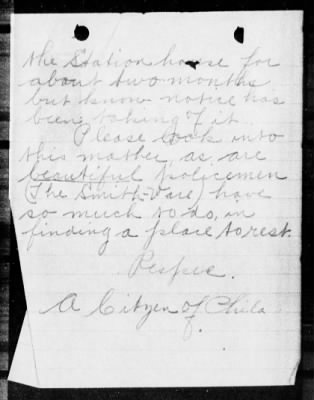 the Station house for
about two months
but know notice has
been taking of it.
Please look into
this mather, as, are
beautiful policemen
(The Smith-Vare) have
so much to do, in
finding a place to rest.
Respec.
A Citzen of Phila